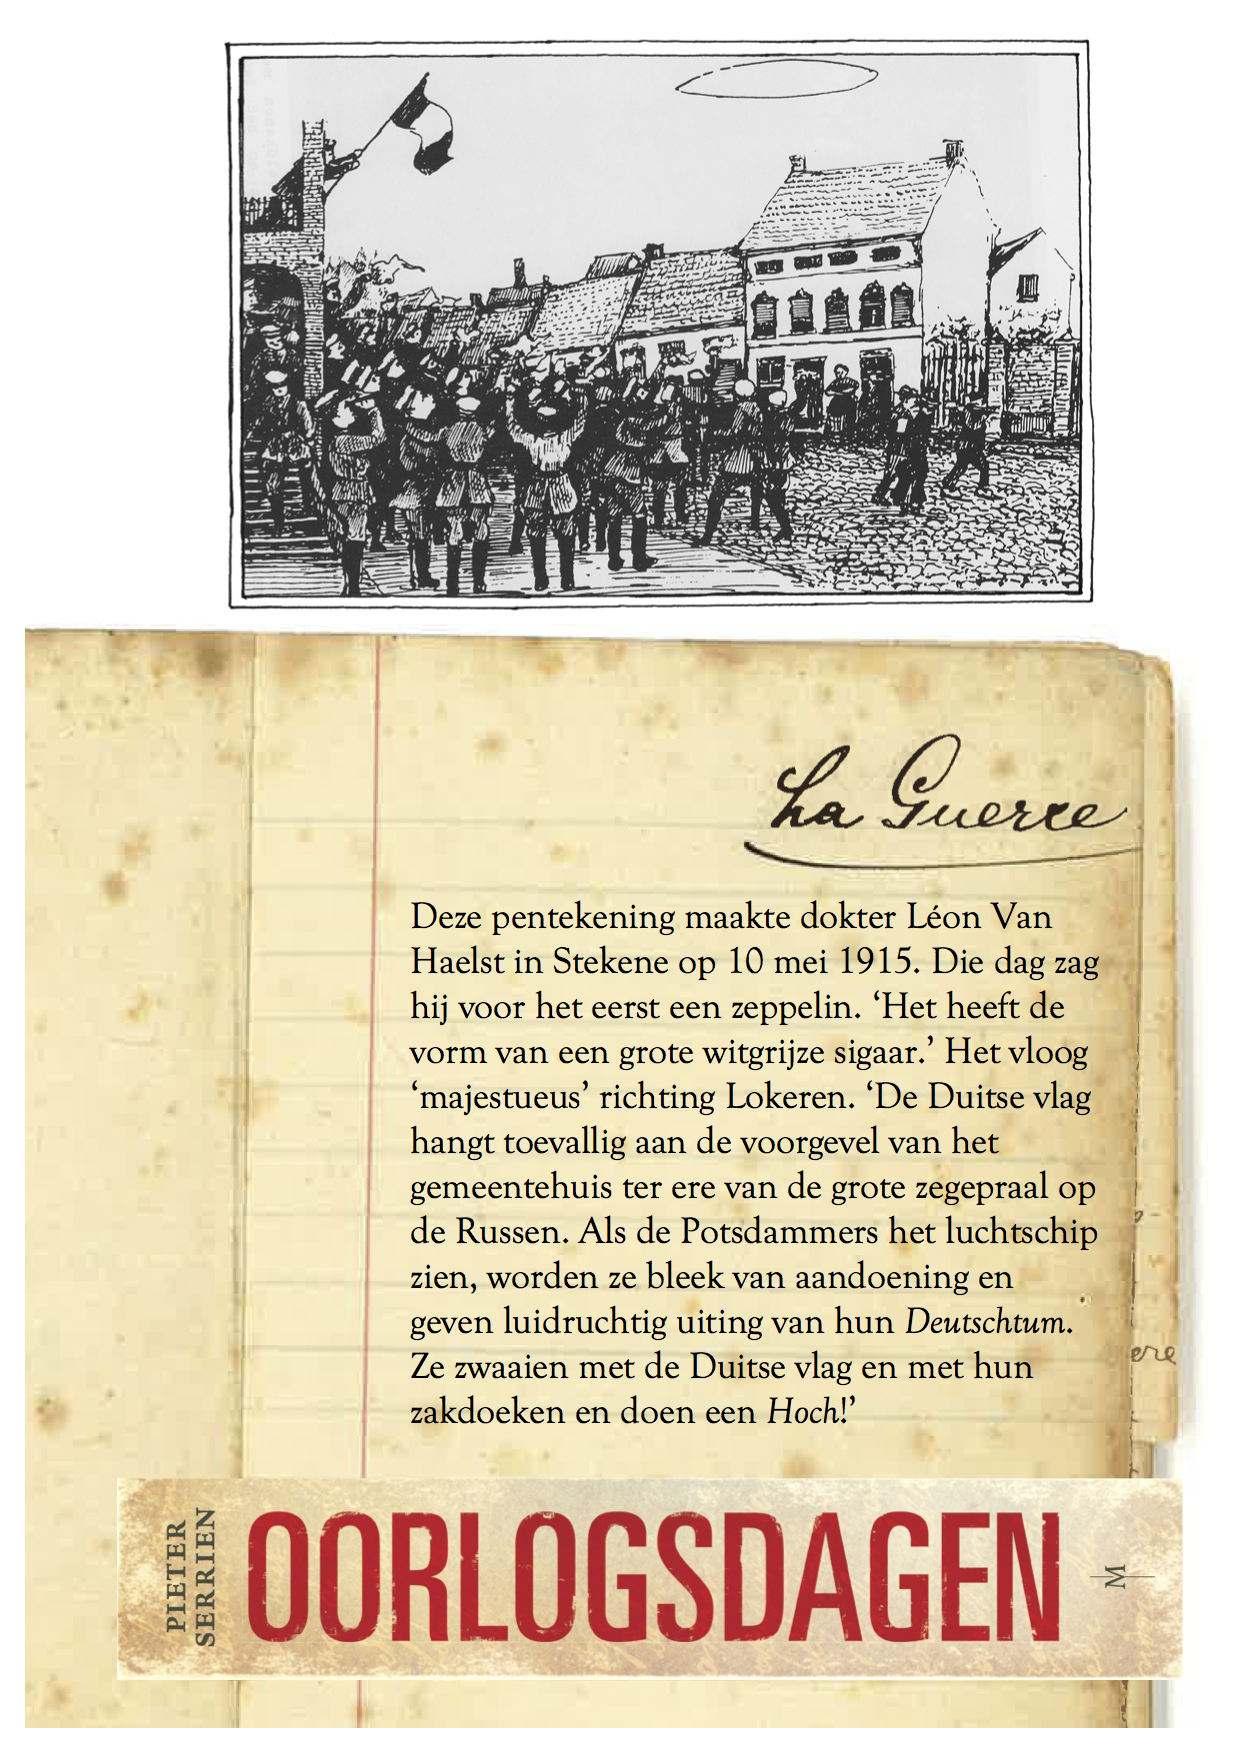 La Guerre
Deze pentekening maakte dokter Léon Van
Haelst in Stekene op 10 mei 1915. Die dag zag
hij voor het eerst een zeppelin. ‘Het heeft de
vorm van een grote witgrijze sigaar.’ Het vloog
‘majestueus’ richting Lokeren. ‘De Duitse vlag
hangt toevallig aan de voorgevel van het
gemeentehuis ter ere van de grote zegepraal op
de Russen. Als de Potsdammers het luchtschip
zien, worden ze bleek van aandoening en
geven luidruchtig uiting van hun Deutschtum.
Ze zwaaien met de Duitse vlag en met hun
zakdoeken en doen een Hoch!’
ere
PIETER
SERRIEN
OORLOGSDAGEN
M